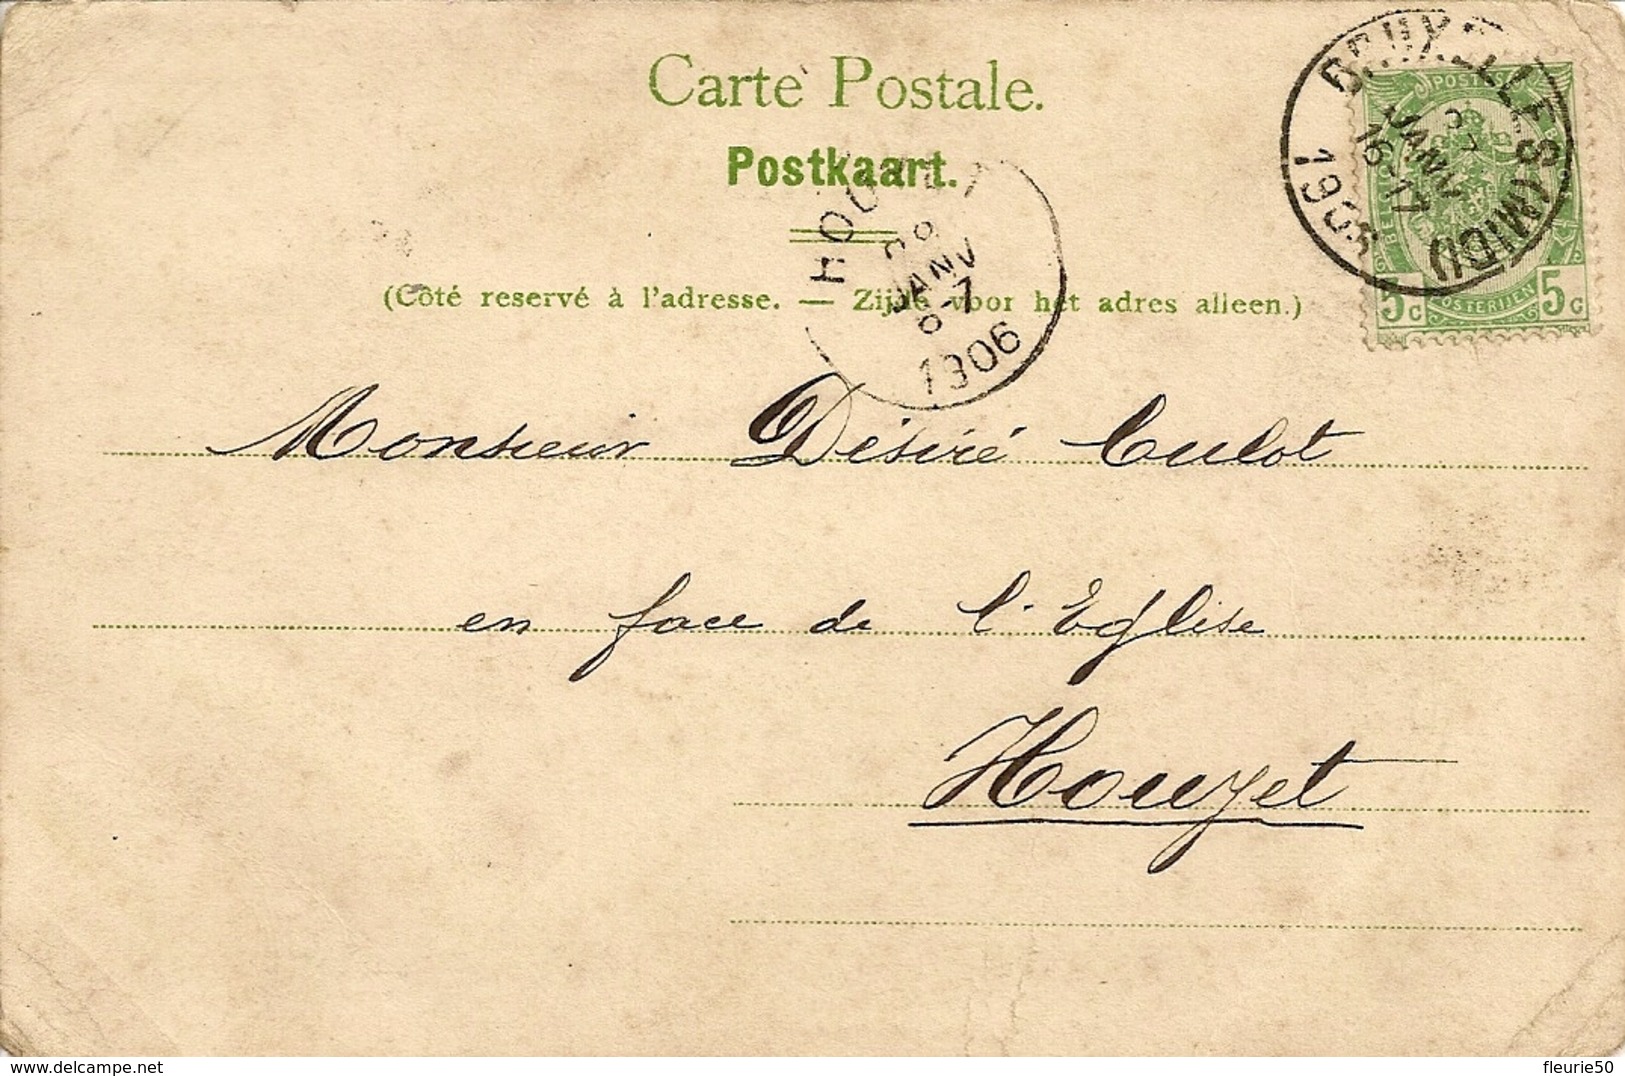 Carte Postale.
Postkaart.
(Côté reservé à l'adresse. — Zijde voor het adres alleen.)
BRUXELLES (MIDI)
27
JANV
16-17
190
HOU
JANV
6-7
1906
POSTES
BELGIQUE
POSTERIJEN
5 C 5 C
Monsieur Désiré Culot
en face de l'Eglise
Houyet
delcampe.net
fleurie50